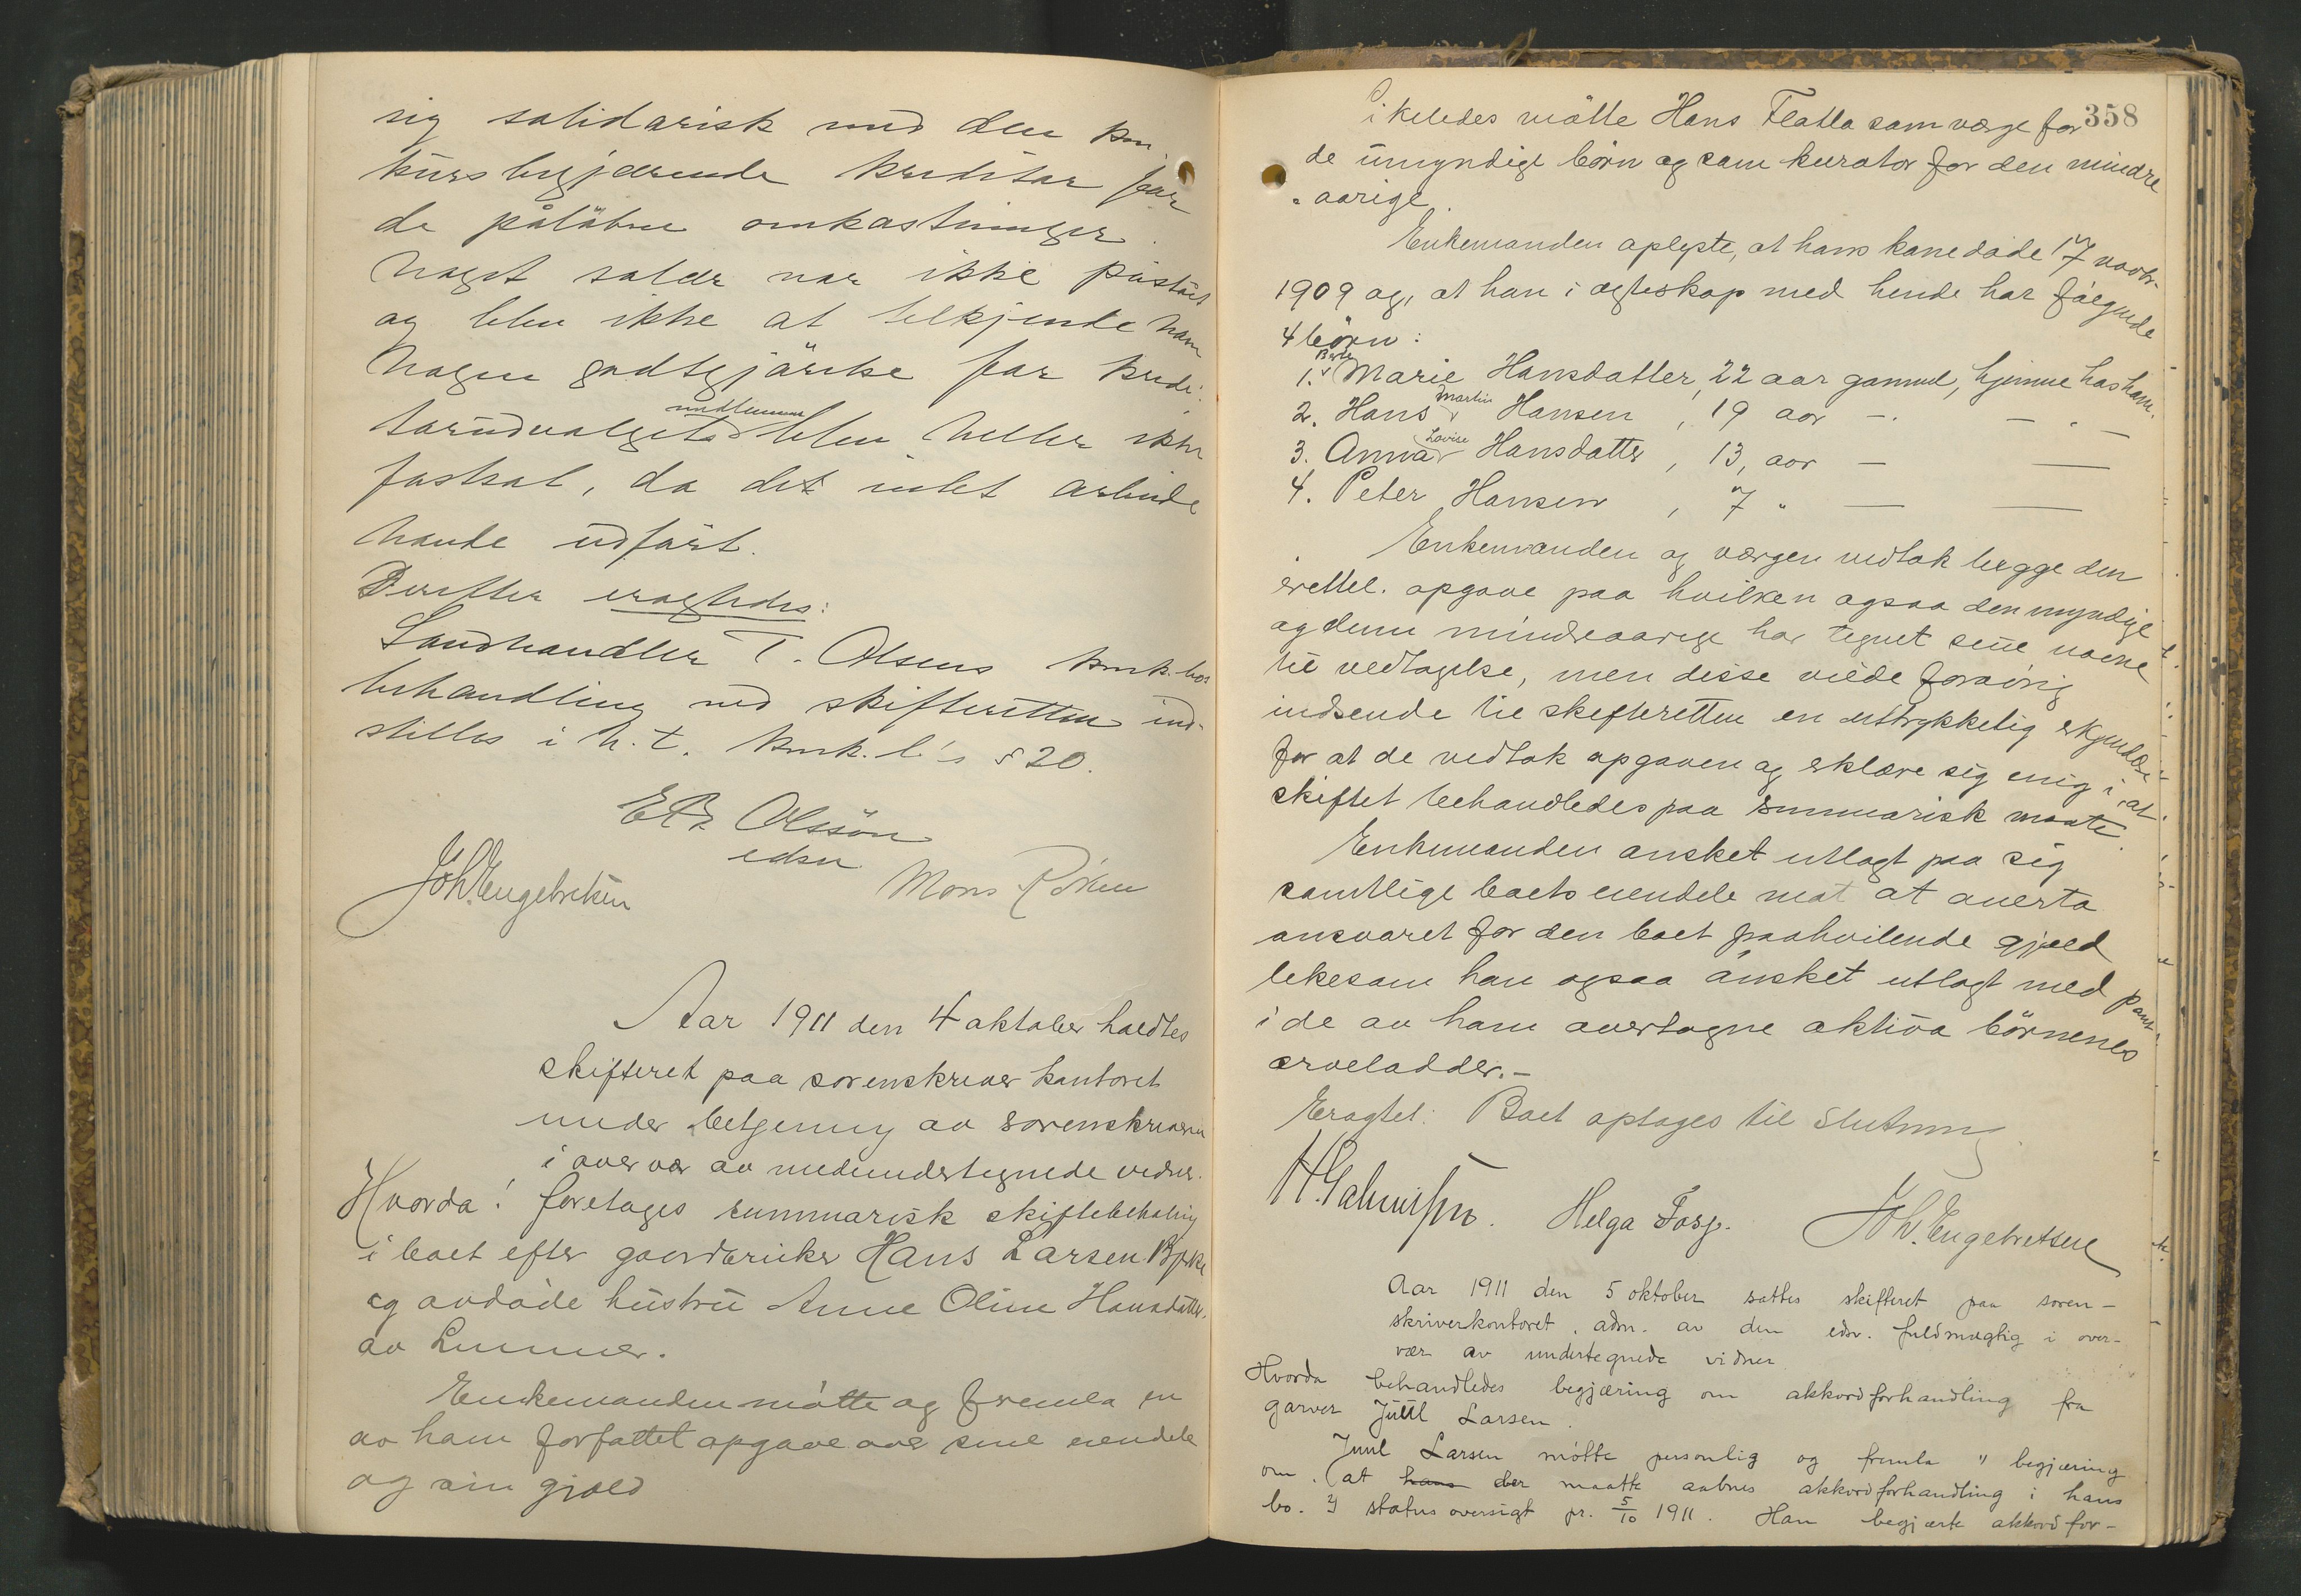 sig solidarisk med den kon-
kursbegjærende kreditor for
de påløbne omkostninger.
Noget salær var ikke påstået
og blev ikke at tilkjende ham
Nogen godtgjørelse for kredi-
torudvalgets medlemmer blev heller ikke
fastsat, da det intet arbeide
havde udført.
Derefter eragtedes:
Landhandler T. Olsens konk.bos
behandling ved skifteretten ind-
stilles i h.t. konk.l's § 20.
Olssøn
edsv
Joh. Engebretsen Mons
Aar 1911 den 4 oktober holdtes
skifteret paa sorenskriver kontoret
under betjening av sorenskriveren
i overvær av medundertegnede vidner.
Hvorda! foretages summarisk skiftebehandling
i boet efter gaardbruker Hans Larsen
og avdøde hustru Anne Oline Hansdatter
av Lunner.
Enkemanden møtte og fremla en
av ham forfattet opgave over sine eiendele
og sin gjæld
358
Likeledes møtte Hans Flatla som værge for
de umyndige børn og som kurator for den mindre
aarige.
Enkemanden oplyste, at hans kone døde 17 novbr.
1909 og, at han i egteskap med hende har følgende
4 børn:
1. Berte Marie Hansdatter, 22 aar gammel, hjemme hos ham.
2. Hans Martin Hansen, 19 aar — . — " —
3. Anna Lovise Hansdatter, 13, aar — —
4. Peter Hansen, 7 " — —
Enkemanden og værgen vedtok begge den
erettel. opgave paa hvilken ogsaa den myndige
og denne mindreaarige har tegnet sine navne
til vedtagelse, men disse vilde forøvrig
indsende til skifteretten en uttrykkelig erkjendelse
for at de vedtok opgaven og erklære sig enig i, at
skiftet behandledes paa summarisk maate.
Enkemanden ønsket utlagt paa sig
samtlige boets eiendele mot at overta
ansvaret for den boet paahvilende gjæld
likesom han ogsaa ønsket utlagt med pant
i de av ham overtagne aktiva børnenes
arvelodder.-
Eragtet: Boet optages til slutning.
Helga Fosp. Joh. Engebretsen
Aar 1911 den 5 oktober sattes skifteret paa soren-
skriverkontoret, adm. av den edsv. fuldmægtig i over-
vær av undertegnede vidner
Hvorda behandledes begjæring om akkordforhandling fra
garver Juul Larsen.
Juul Larsen møtte personlig og fremla 1) begjæring
om at hans der maatte aabnes akkordforhandling i hans
bo. 2) status oversigt pr. 5/10 1911. Han begjærte akkordfor-